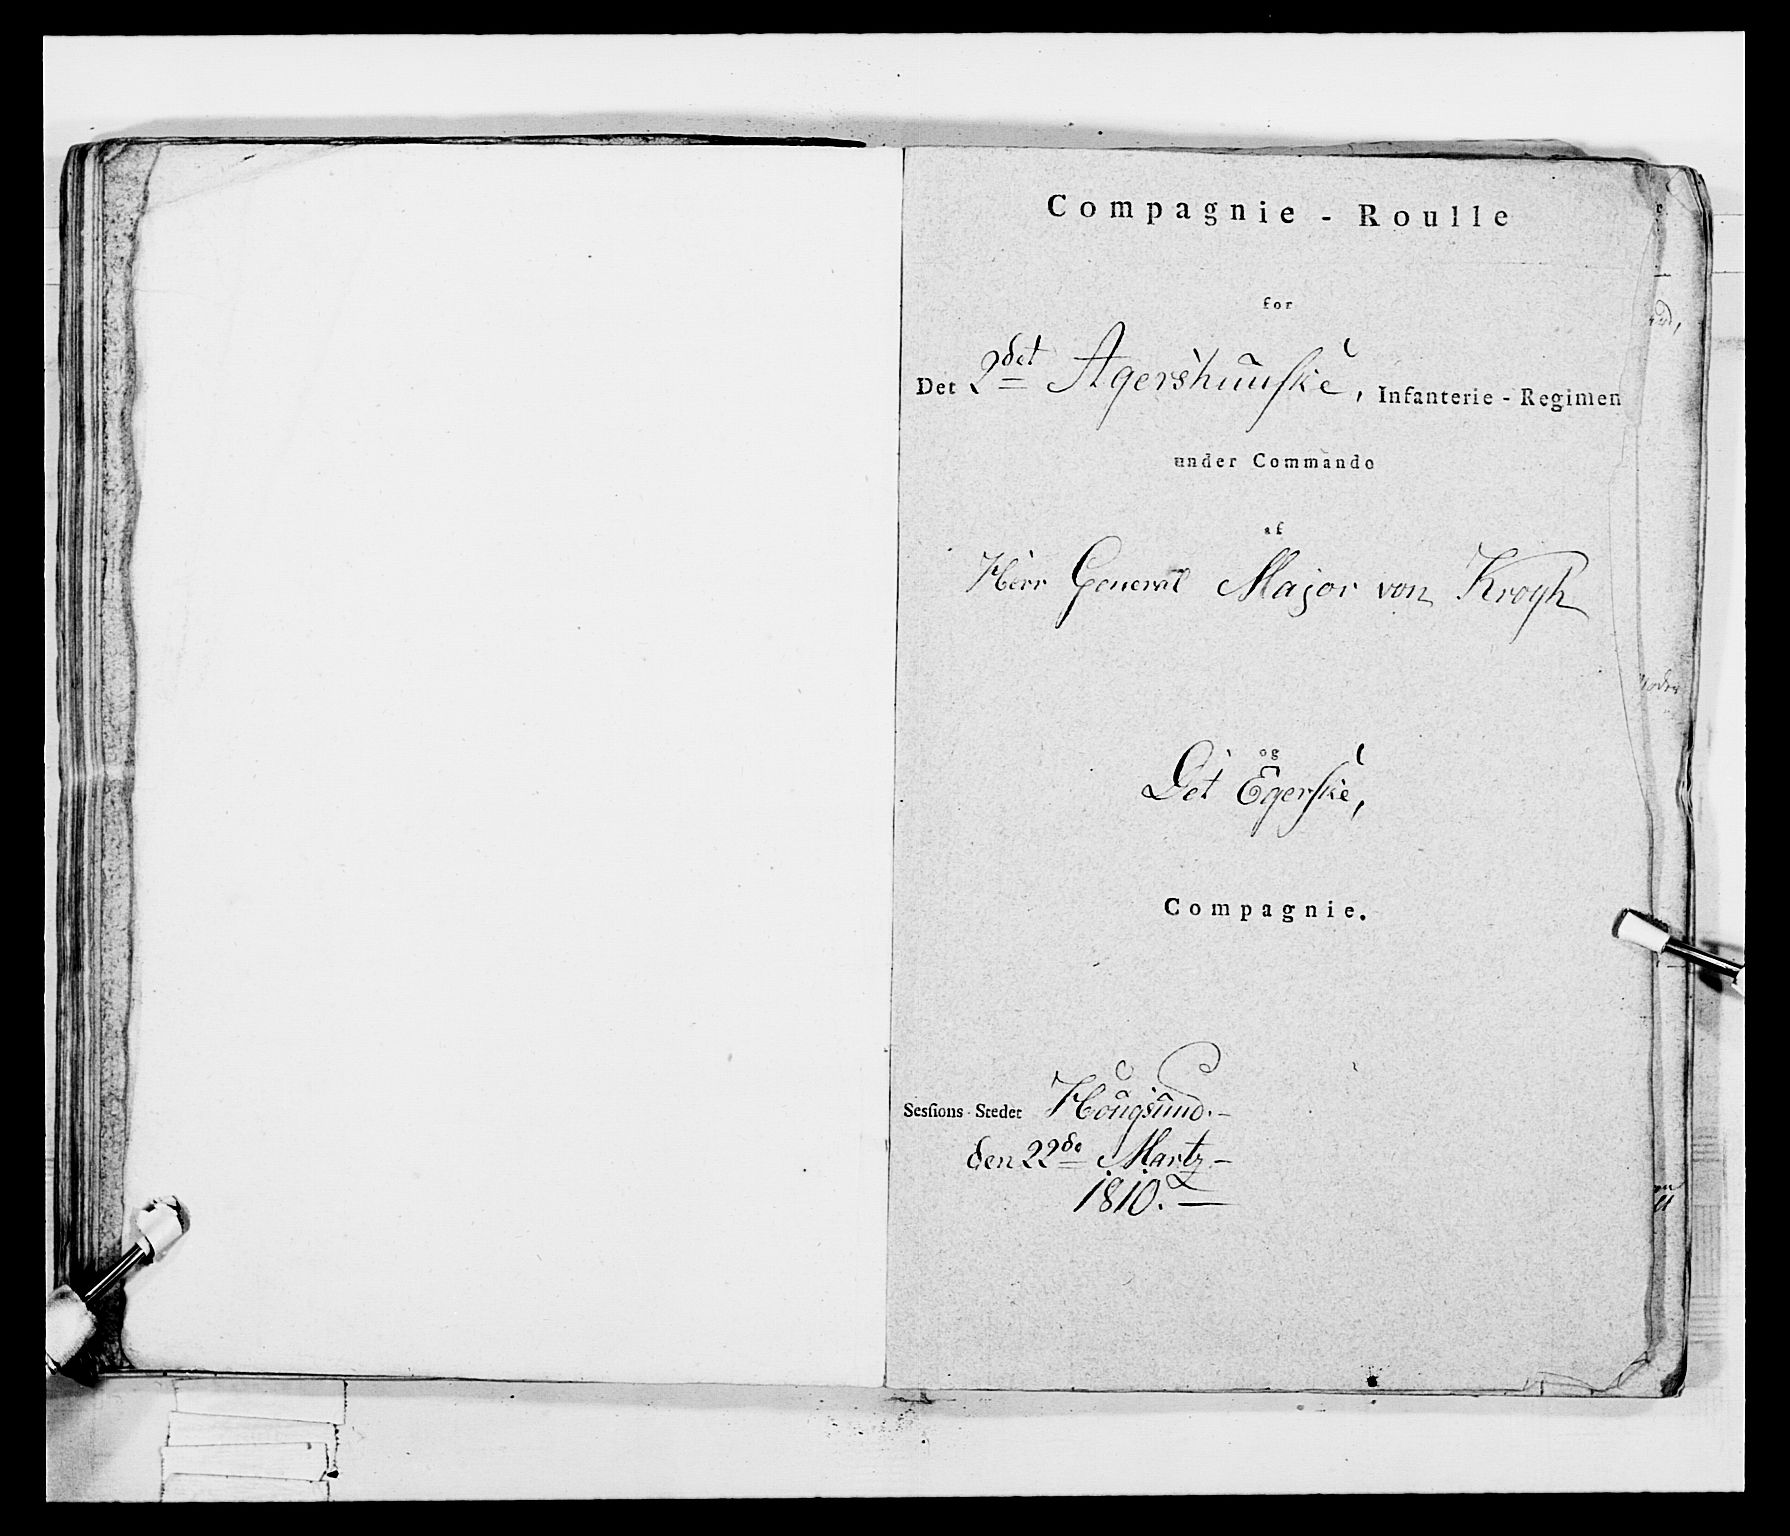 Compagnie - Roulle
for
Det 2det Agershuuske, Infanterie - Regimen
under Commando
af
Herr General Major von Krogh
og
Det Egerske,
Compagnie.
Sessions Stedet Hougsund.-
den 22de Martz -
1810. -